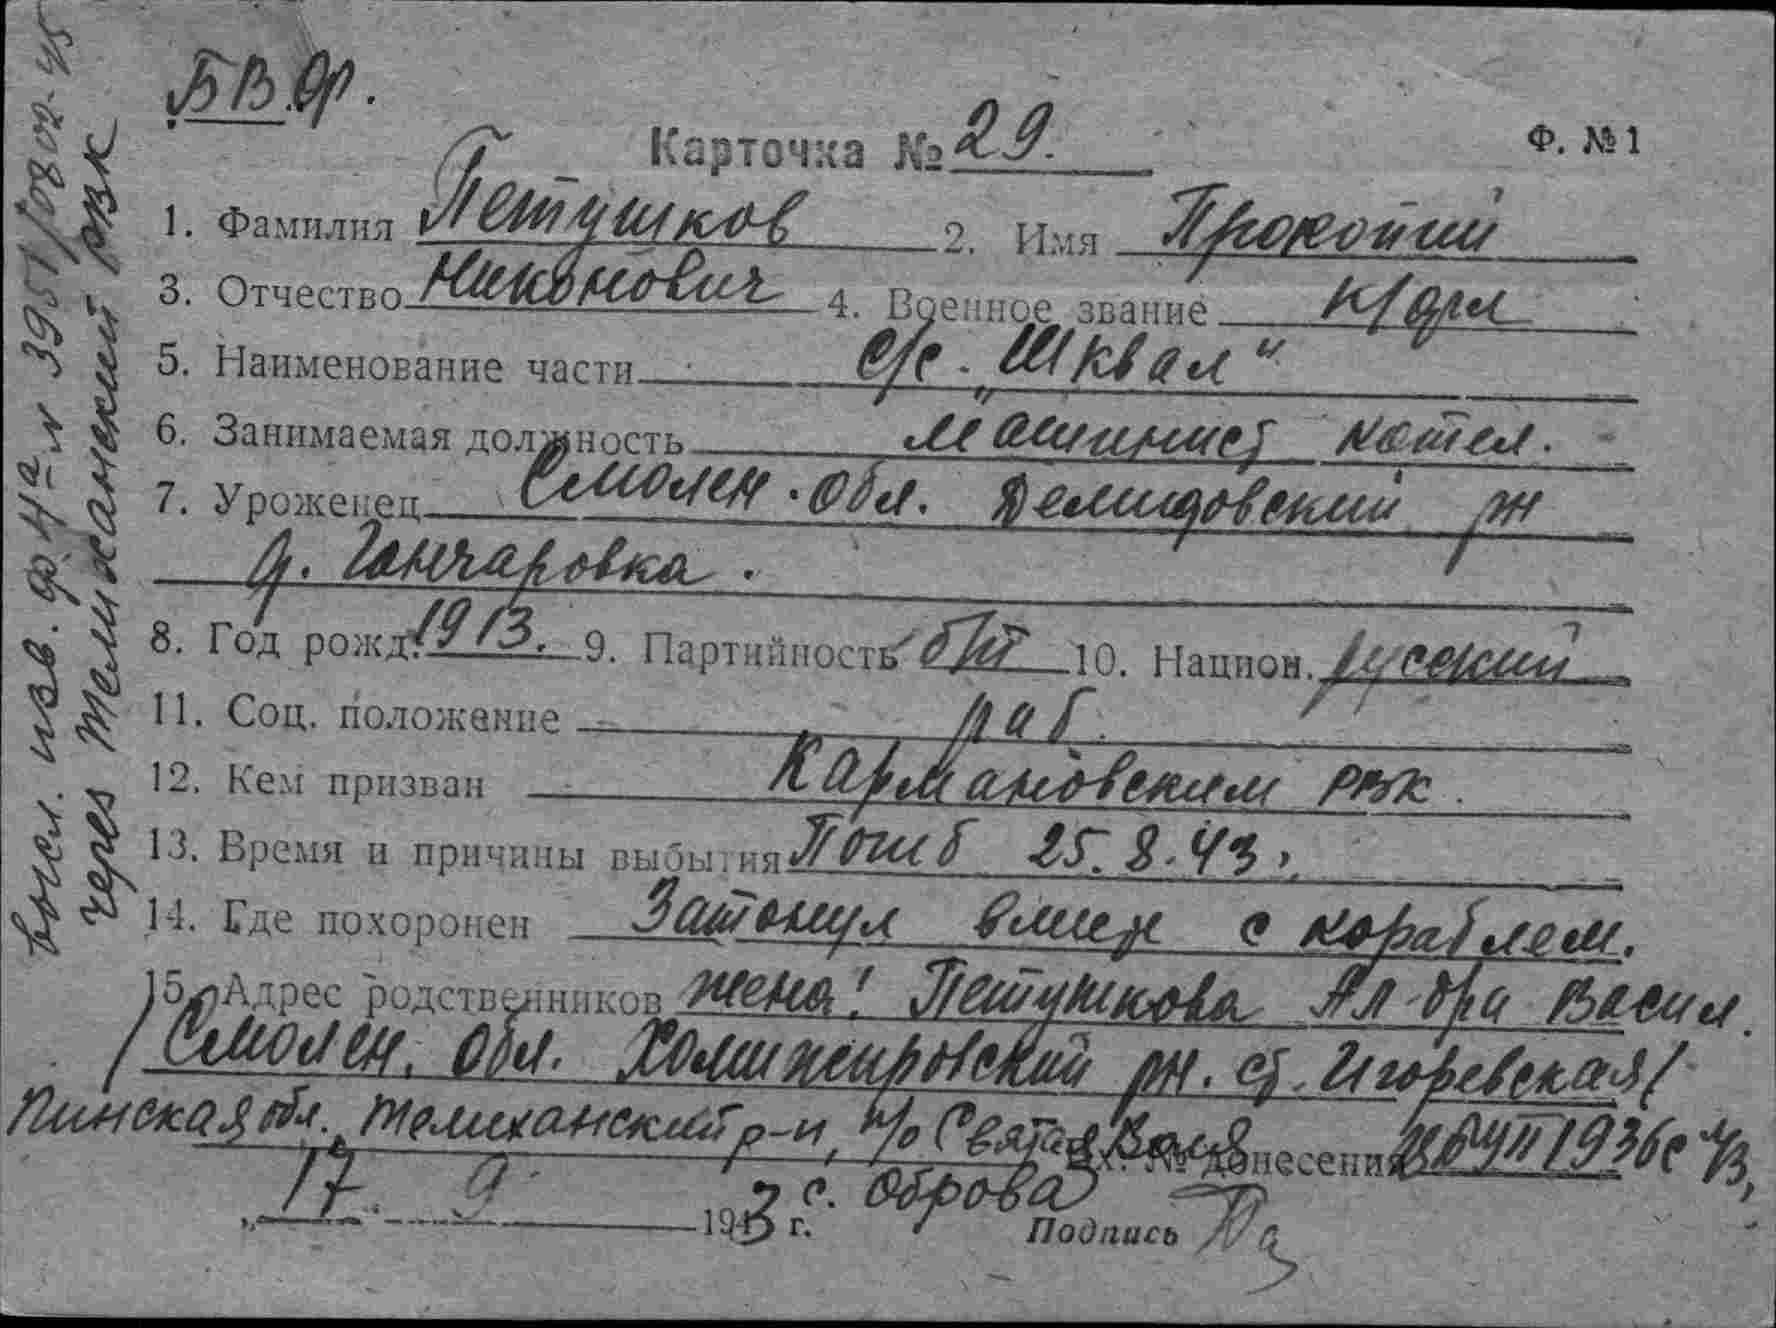 БВ.Ф.
Карточка № 29.
Ф. №1
1. Фамилия Петушков 2. Имя Прокопий
3. Отчество Никонович 4. Военное звание к/фл
5. Наименование части с/с. „Шквал"
6. Занимаемая должность машинист котел.
7. Уроженец Смолен. обл. Демидовский рн
д. Гончаровка.
8. Год рожд. 1913. 9. Партийность б/п 10. Национ. русский
11. Соц. положение раб.
12. Кем призван Кармановским РВК.
13. Время и причины выбытия Погиб 25.8.43г.
14. Где похоронен Затонул вместе с кораблем.
15. Адрес родственников жена: Петушкова Ал-дра Васил.
/Смолен. обл. Холмжировский рн. ст. Игоревская/
Пинская обл. Телиханский р-н, п/о Святая Воля
Вх. № донесения 1936с 43г.
с. Оброва
„17" 9 1943 г.
Подпись
высл. изв. ф. 4а N 3951
через Телиханский РВК